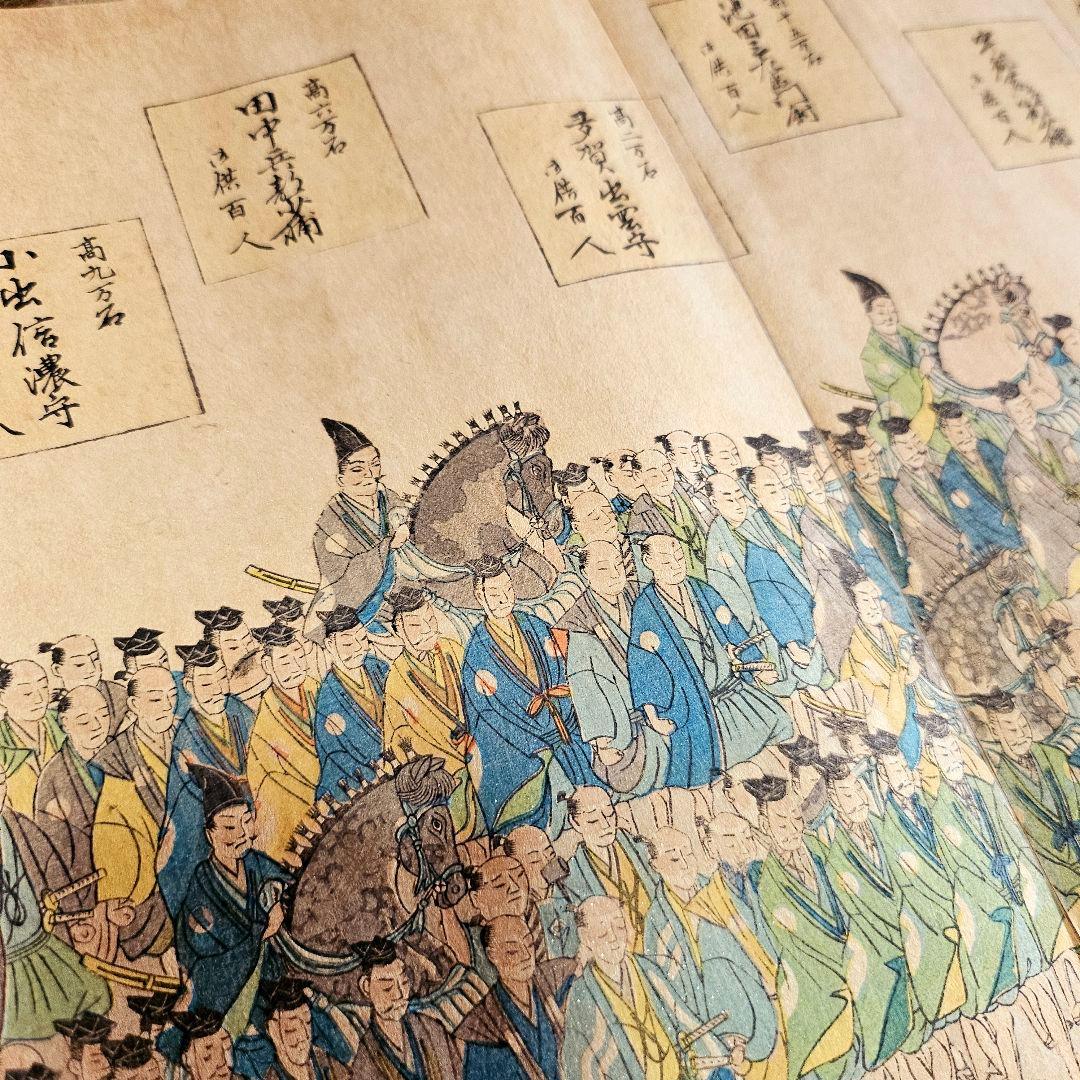 十五万石
池田三左衛門尉
御供百人
高二万石
多賀出雲守
御供百人
高六万石
田中兵部輔
御供百人
高九万石
小出信濃守
人